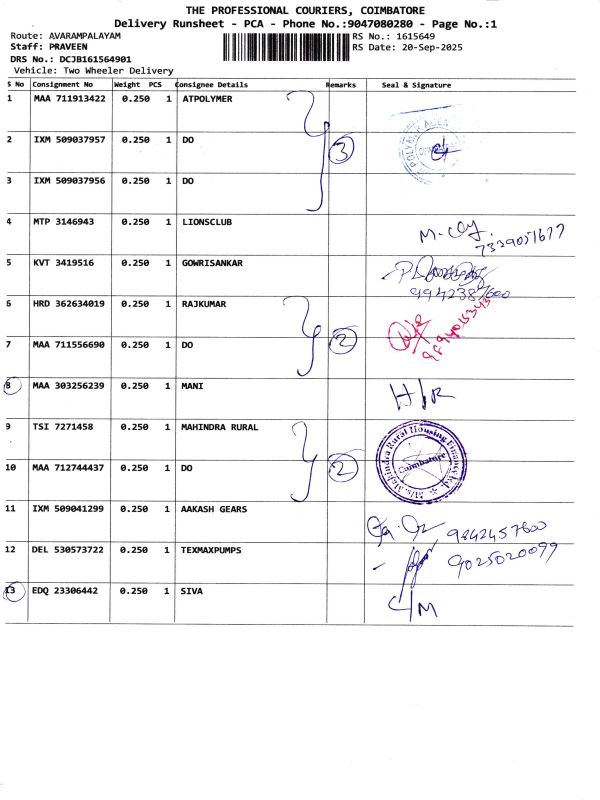 THE PROFESSIONAL COURIERS, COIMBATORE
Delivery Runsheet - PCA - Phone No.:9047080280 - Page No.:1
Route: AVARAMPALAYAM RS No.: 1615649
Staff: PRAVEEN RS Date: 20-Sep-2025
DRS No.: DCJB161564901
Vehicle: Two Wheeler Delivery
S No Consignment No Weight PCS Consignee Details Remarks Seal & Signature
1 MAA 711913422 0.250 1 ATPOLYMER
2 IXM 509037957 0.250 1 DO 3
3 IXM 509037956 0.250 1 DO
4 MTP 3146943 0.250 1 LIONSCLUB 7339051677
5 KVT 3419516 0.250 1 GOWRISANKAR
6 HRD 362634019 0.250 1 RAJKUMAR
7 MAA 711556690 0.250 1 DO 2
8 MAA 303256239 0.250 1 MANI H/R
9 TSI 7271458 0.250 1 MAHINDRA RURAL M/s. Mahindra Rural Housing Finance Ltd. Coimbatore
10 MAA 712744437 0.250 1 DO 2
11 IXM 509041299 0.250 1 AAKASH GEARS 9842457600
12 DEL 530573722 0.250 1 TEXMAXPUMPS 9025020099
13 EDQ 23306442 0.250 1 SIVA